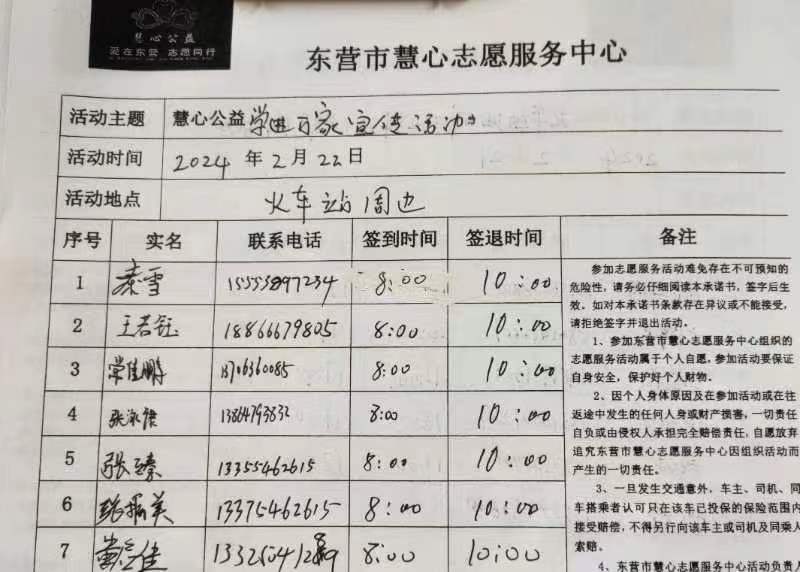 慧心公益
爱在东营 志愿同行
东营市慧心志愿服务中心
活动主题 慧心公益学进万家宣传活动
活动时间 2024年2月22日
活动地点 火车站周边
序号 实名 联系电话 签到时间 签退时间 备注
1 袁雪 15553897234 8:00 10:00
2 王若钰 18866679805 8:00 10:00
3 常佳鹏 13706360085 8:00 10:00
4 13864793832 8:00 10:00
5 13355462615 8:00 10:00
6 张振美 13375462615 8:00 10:00
7 8:00 10:00
参加志愿服务活动难免存在不可预知的
危险性，请务必仔细阅读本承诺书，签字后生
效。如对本承诺书条款存在异议或不能接受，
请拒绝签字并退出活动。
1、参加东营市慧心志愿服务中心组织的
志愿服务活动属于个人自愿，参加活动要保证
自身安全，保护好个人财物。
2、因个人身体原因及在参加活动或在往
返途中发生的任何人身或财产损害，一切责任
自负或由侵权人承担完全赔偿责任，自愿放弃
追究东营市慧心志愿服务中心因组织活动而
产生的一切责任。
3、一旦发生交通意外，车主、司机、同
车搭乘者认可只在该车已投保的保险范围内
接受赔偿，不得另行向该车主或司机及同乘人
索赔。
4、东营市慧心志愿服务中心活动负责人